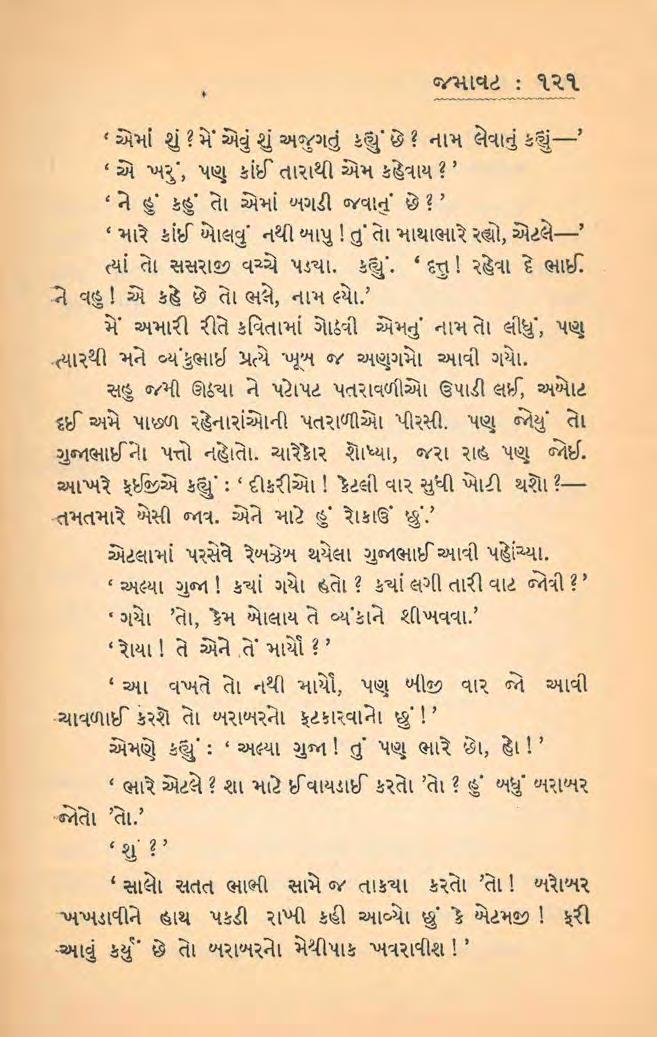 જમાવટ : ૧૨૧
‘ એમાં શું ? મેં એવું શું અજુગતું કહ્યું છે ? નામ લેવાનું કહ્યું—’
‘ એ ખરું, પણ કાંઈ તારાથી એમ કહેવાય ? ’
‘ ને હું કહું તો એમાં બગડી જવાનું છે ? ’
‘ મારે કાંઈ બોલવું નથી બાપુ ! તું તો માથાભારે રહ્યો, એટલે—’
ત્યાં તો સસરાજી વચ્ચે પડ્યા. કહ્યું. ‘ દત્તુ ! રહેવા દે ભાઈ.
ને વહુ ! એ કહે છે તો ભલે, નામ લ્યો.’
મેં અમારી રીતે કવિતામાં ગોઠવી એમનું નામ તો લીધું, પણ
ત્યારથી મને વ્યંકુભાઈ પ્રત્યે ખૂબ જ અણગમો આવી ગયો.
સહુ જમી ઊઠ્યા ને પટોપટ પતરાવળીઓ ઉપાડી લઈ, અબોટ
દઈ અમે પાછળ રહેનારાંઓની પતરાળીઓ પીરસી. પણ જોયું તો
ગુજાભાઈનો પત્તો નહોતો. ચારેકોર શોધ્યા, જરા રાહ પણ જોઈ.
આખરે ફઈજીએ કહ્યું : ‘ દીકરીઓ ! કેટલી વાર સુધી ખોટી થશો ?—
તમતમારે બેસી જાવ. એને માટે હું રોકાઉં છું.’
એટલામાં પરસેવે રેબઝેબ થયેલા ગુજાભાઈ આવી પહોંચ્યા.
‘ અલ્યા ગુજા ! કયાં ગયો હતો ? કયાં લગી તારી વાટ જોવી ? ’
‘ ગયો ’તો, કેમ બોલાય તે વ્યંકાને શીખવવા.’
‘ રોયા ! તે એને તેં માર્યો ? ’
‘ આ વખતે તો નથી માર્યો, પણ બીજી વાર જો આવી
ચાવળાઈ કરશે તો બરાબરનો ફટકારવાનો છું ! ’
એમણે કહ્યું : ‘ અલ્યા ગુજા ! તું પણ ભારે છો, હો ! ’
‘ ભારે એટલે ? શા માટે ઈવાયડાઈ કરતો ’તો ? હું બધું બરાબર
જોતો ’તો.’
‘ શું ? ’
‘ સાલો સતત ભાભી સામે જ તાકયા કરતો ’તો ! બરોબર
ખખડાવીને હાથ પકડી રાખી કહી આવ્યો છું કે બેટમજી ! ફરી
આવું કર્યું છે તો બરાબરનો મેથીપાક ખવરાવીશ ! ’